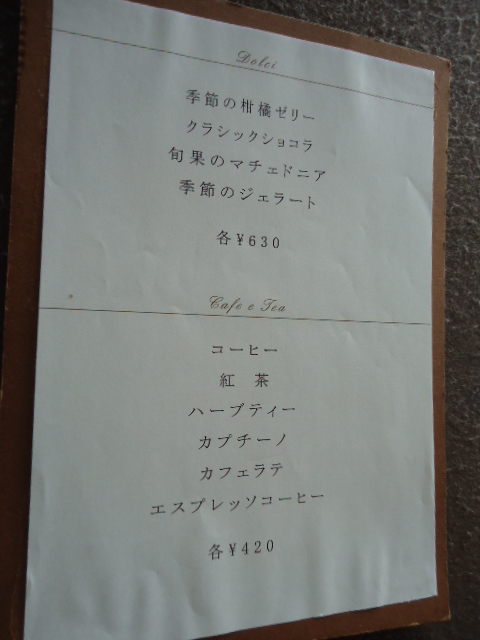 Dolci
季節の柑橘ゼリー
クラシックショコラ
旬果のマチェドニア
季節のジェラート
各¥630
Cafe e Tea
コーヒー
紅 茶
ハーブティー
カプチーノ
カフェラテ
エスプレッソコーヒー
各¥420